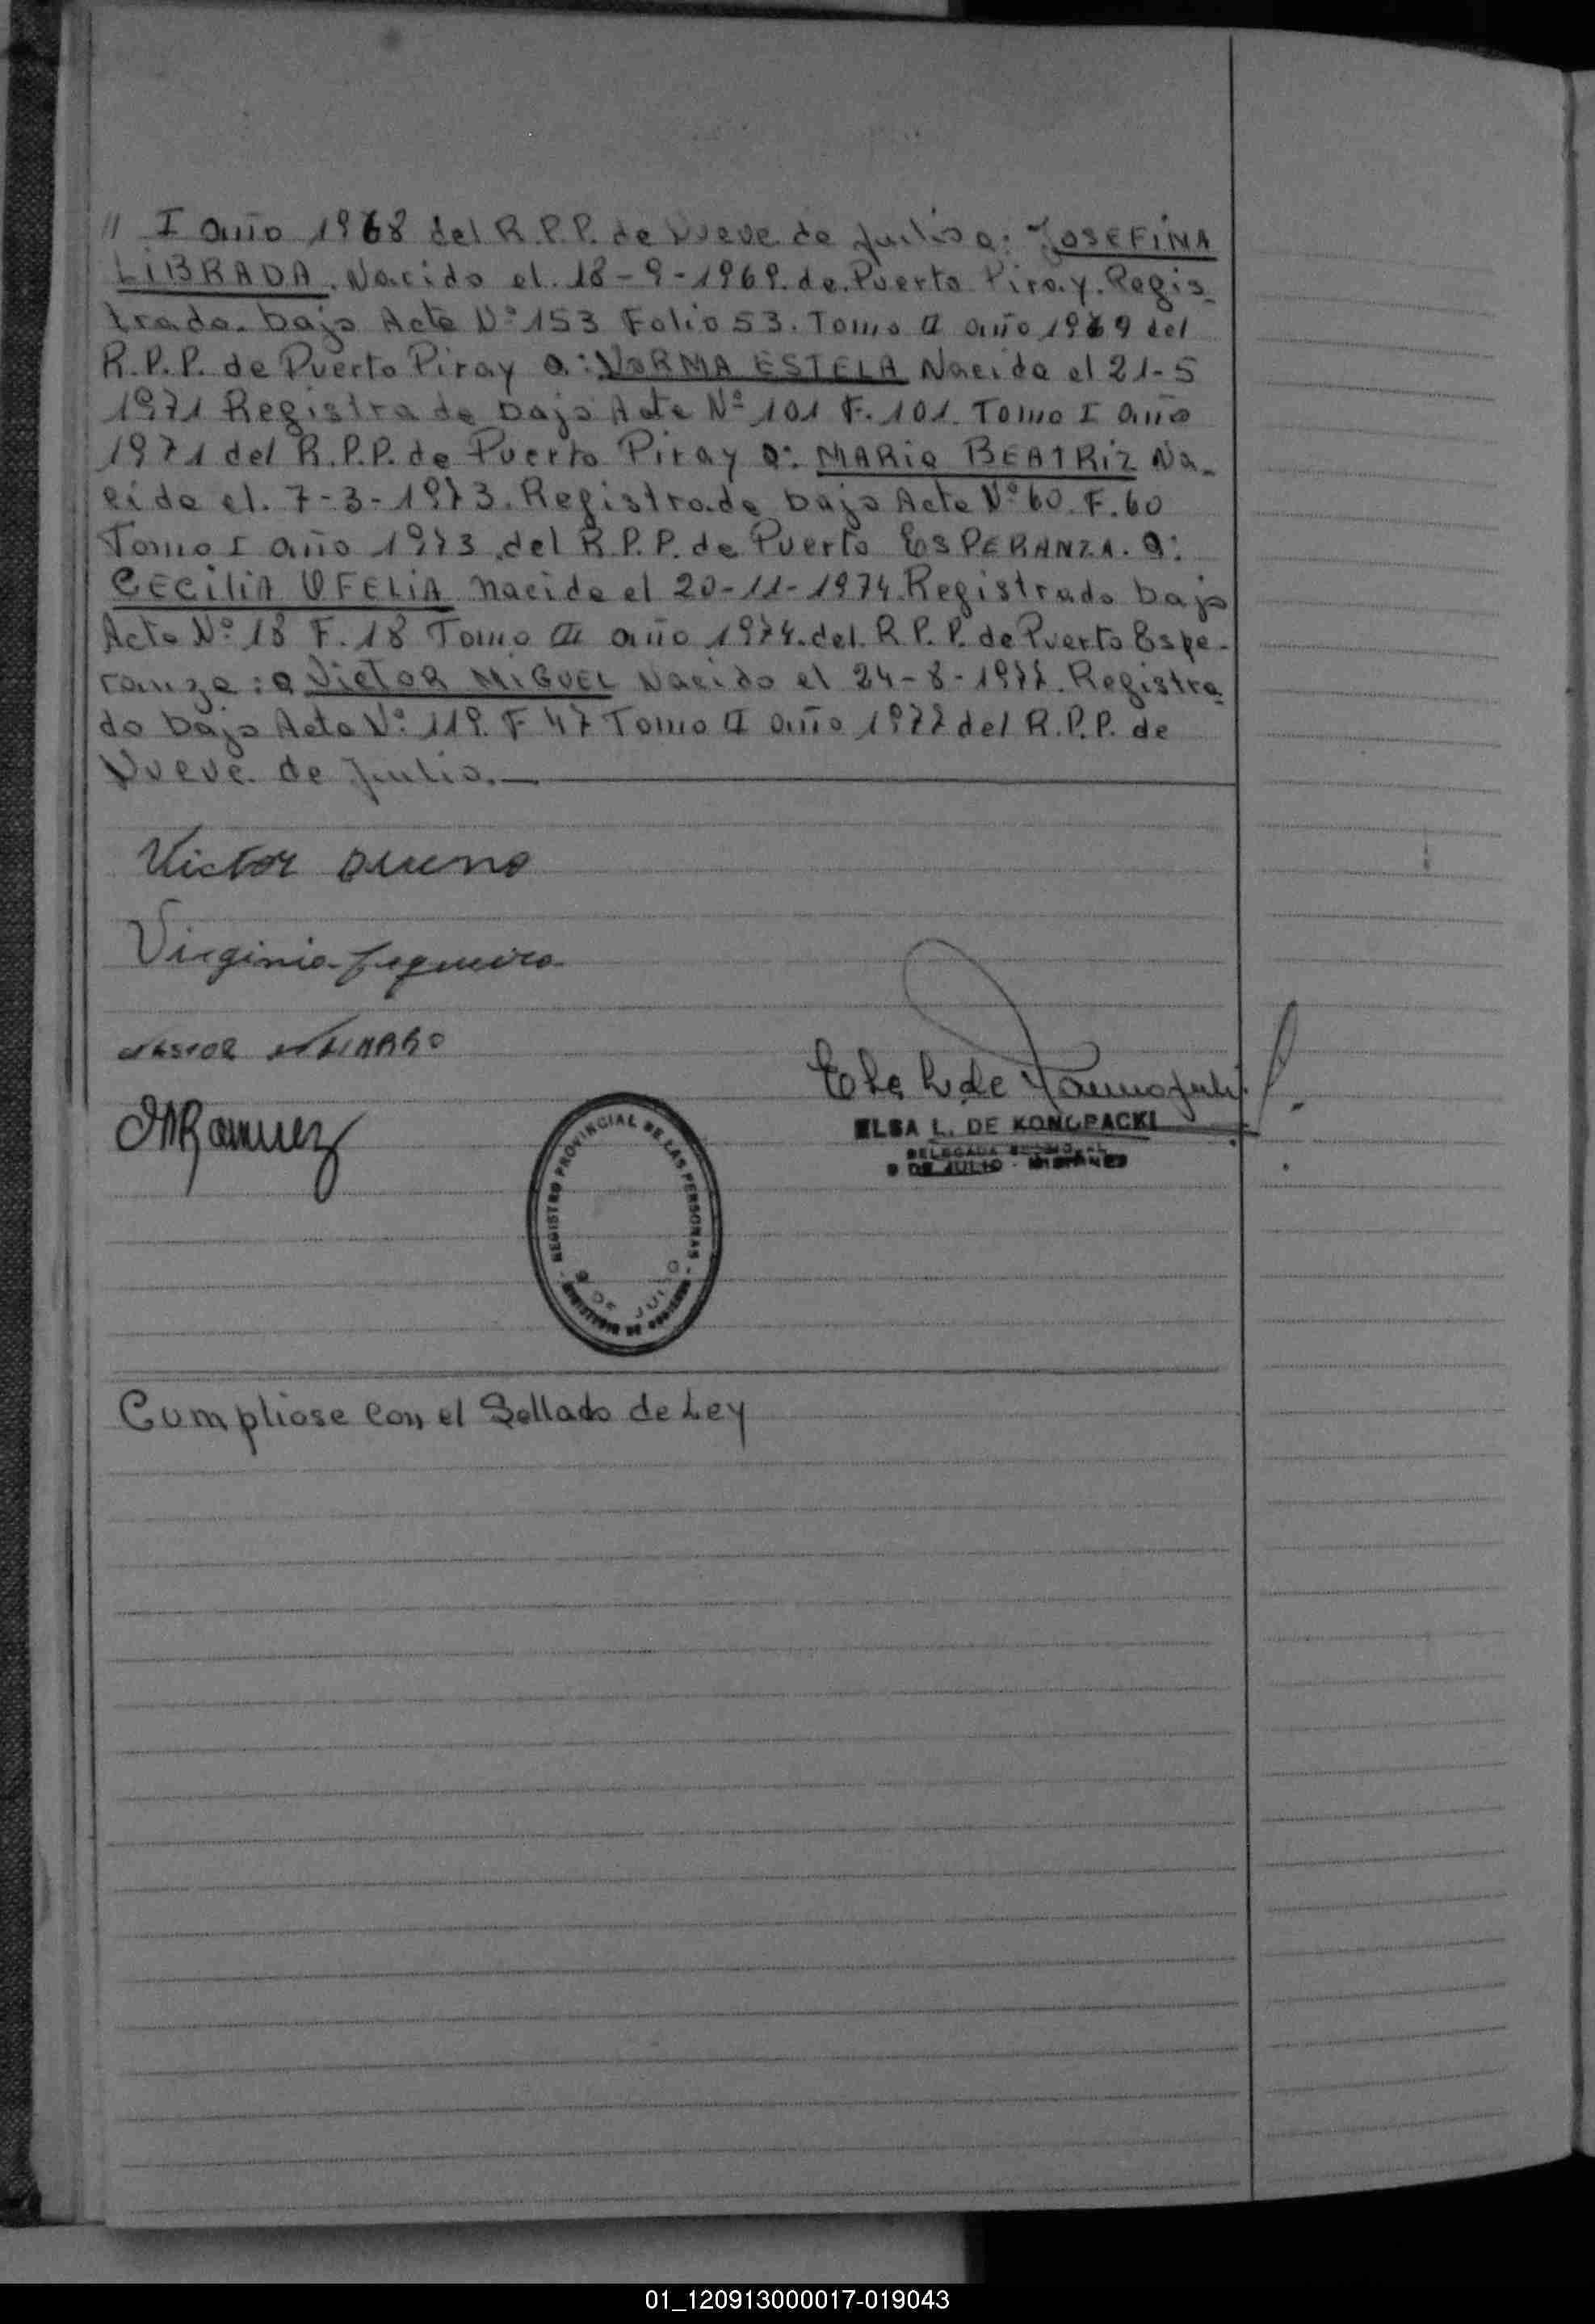 // I año 1968 del R.P.P. de Nueve de Julio a: JOSEFINA
LIBRADA. Nacida el. 18-9-1969. de. Puerto Piray. Regis-
trada. bajo Acta Nº 153 Folio 53. Tomo II año 1969 del
R.P.P. de Puerto Piray a: NORMA ESTELA Nacida el 21-5
1971 Registrada bajo Acta Nº 101 F. 101. Tomo I año
1971 del R.P.P. de Puerto Piray a: MARIA BEATRIZ Na-
cida el. 7-3-1973. Registrada bajo Acta Nº 60. F. 60
Tomo I año 1973 del R.P.P. de Puerto ESPERANZA. a:
CECILIA OFELIA nacida el 20-11-1974. Registrada bajo
Acta Nº 18 F. 18 Tomo III año 1974. del. R.P.P. de Puerto Espe-
ranza: a VICTOR MIGUEL Nacido el 24-8-1977. Registra-
do bajo Acta Nº 119. F 47 Tomo II año 1977 del R.P.P. de
Nueve de Julio.
Victor
Virginia
Ramirez
ELSA L. DE KONOPACKI
9 DE JULIO - MISIONES
REGISTRO PROVINCIAL DE LAS PERSONAS
9 DE JULIO
MINISTERIO DE GOBIERNO
Cumpliose con el Sellado de Ley
01_120913000017-019043